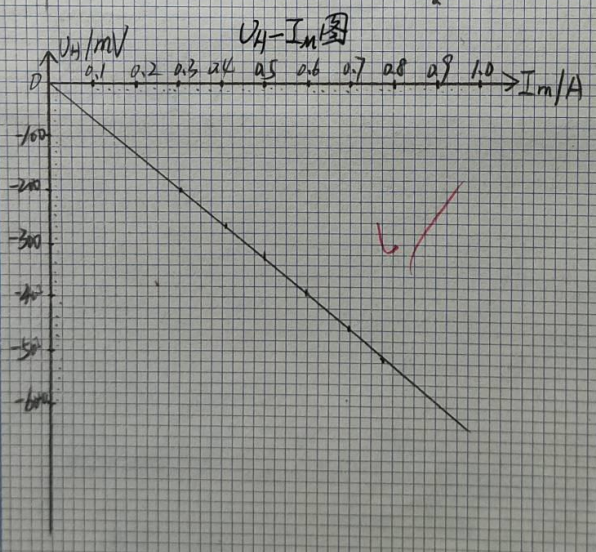 U_H-I_m图
U_H/mV
0 0.1 0.2 0.3 0.4 0.5 0.6 0.7 0.8 0.9 1.0 I_m/A
-100
-200
-300
-400
-50
-600